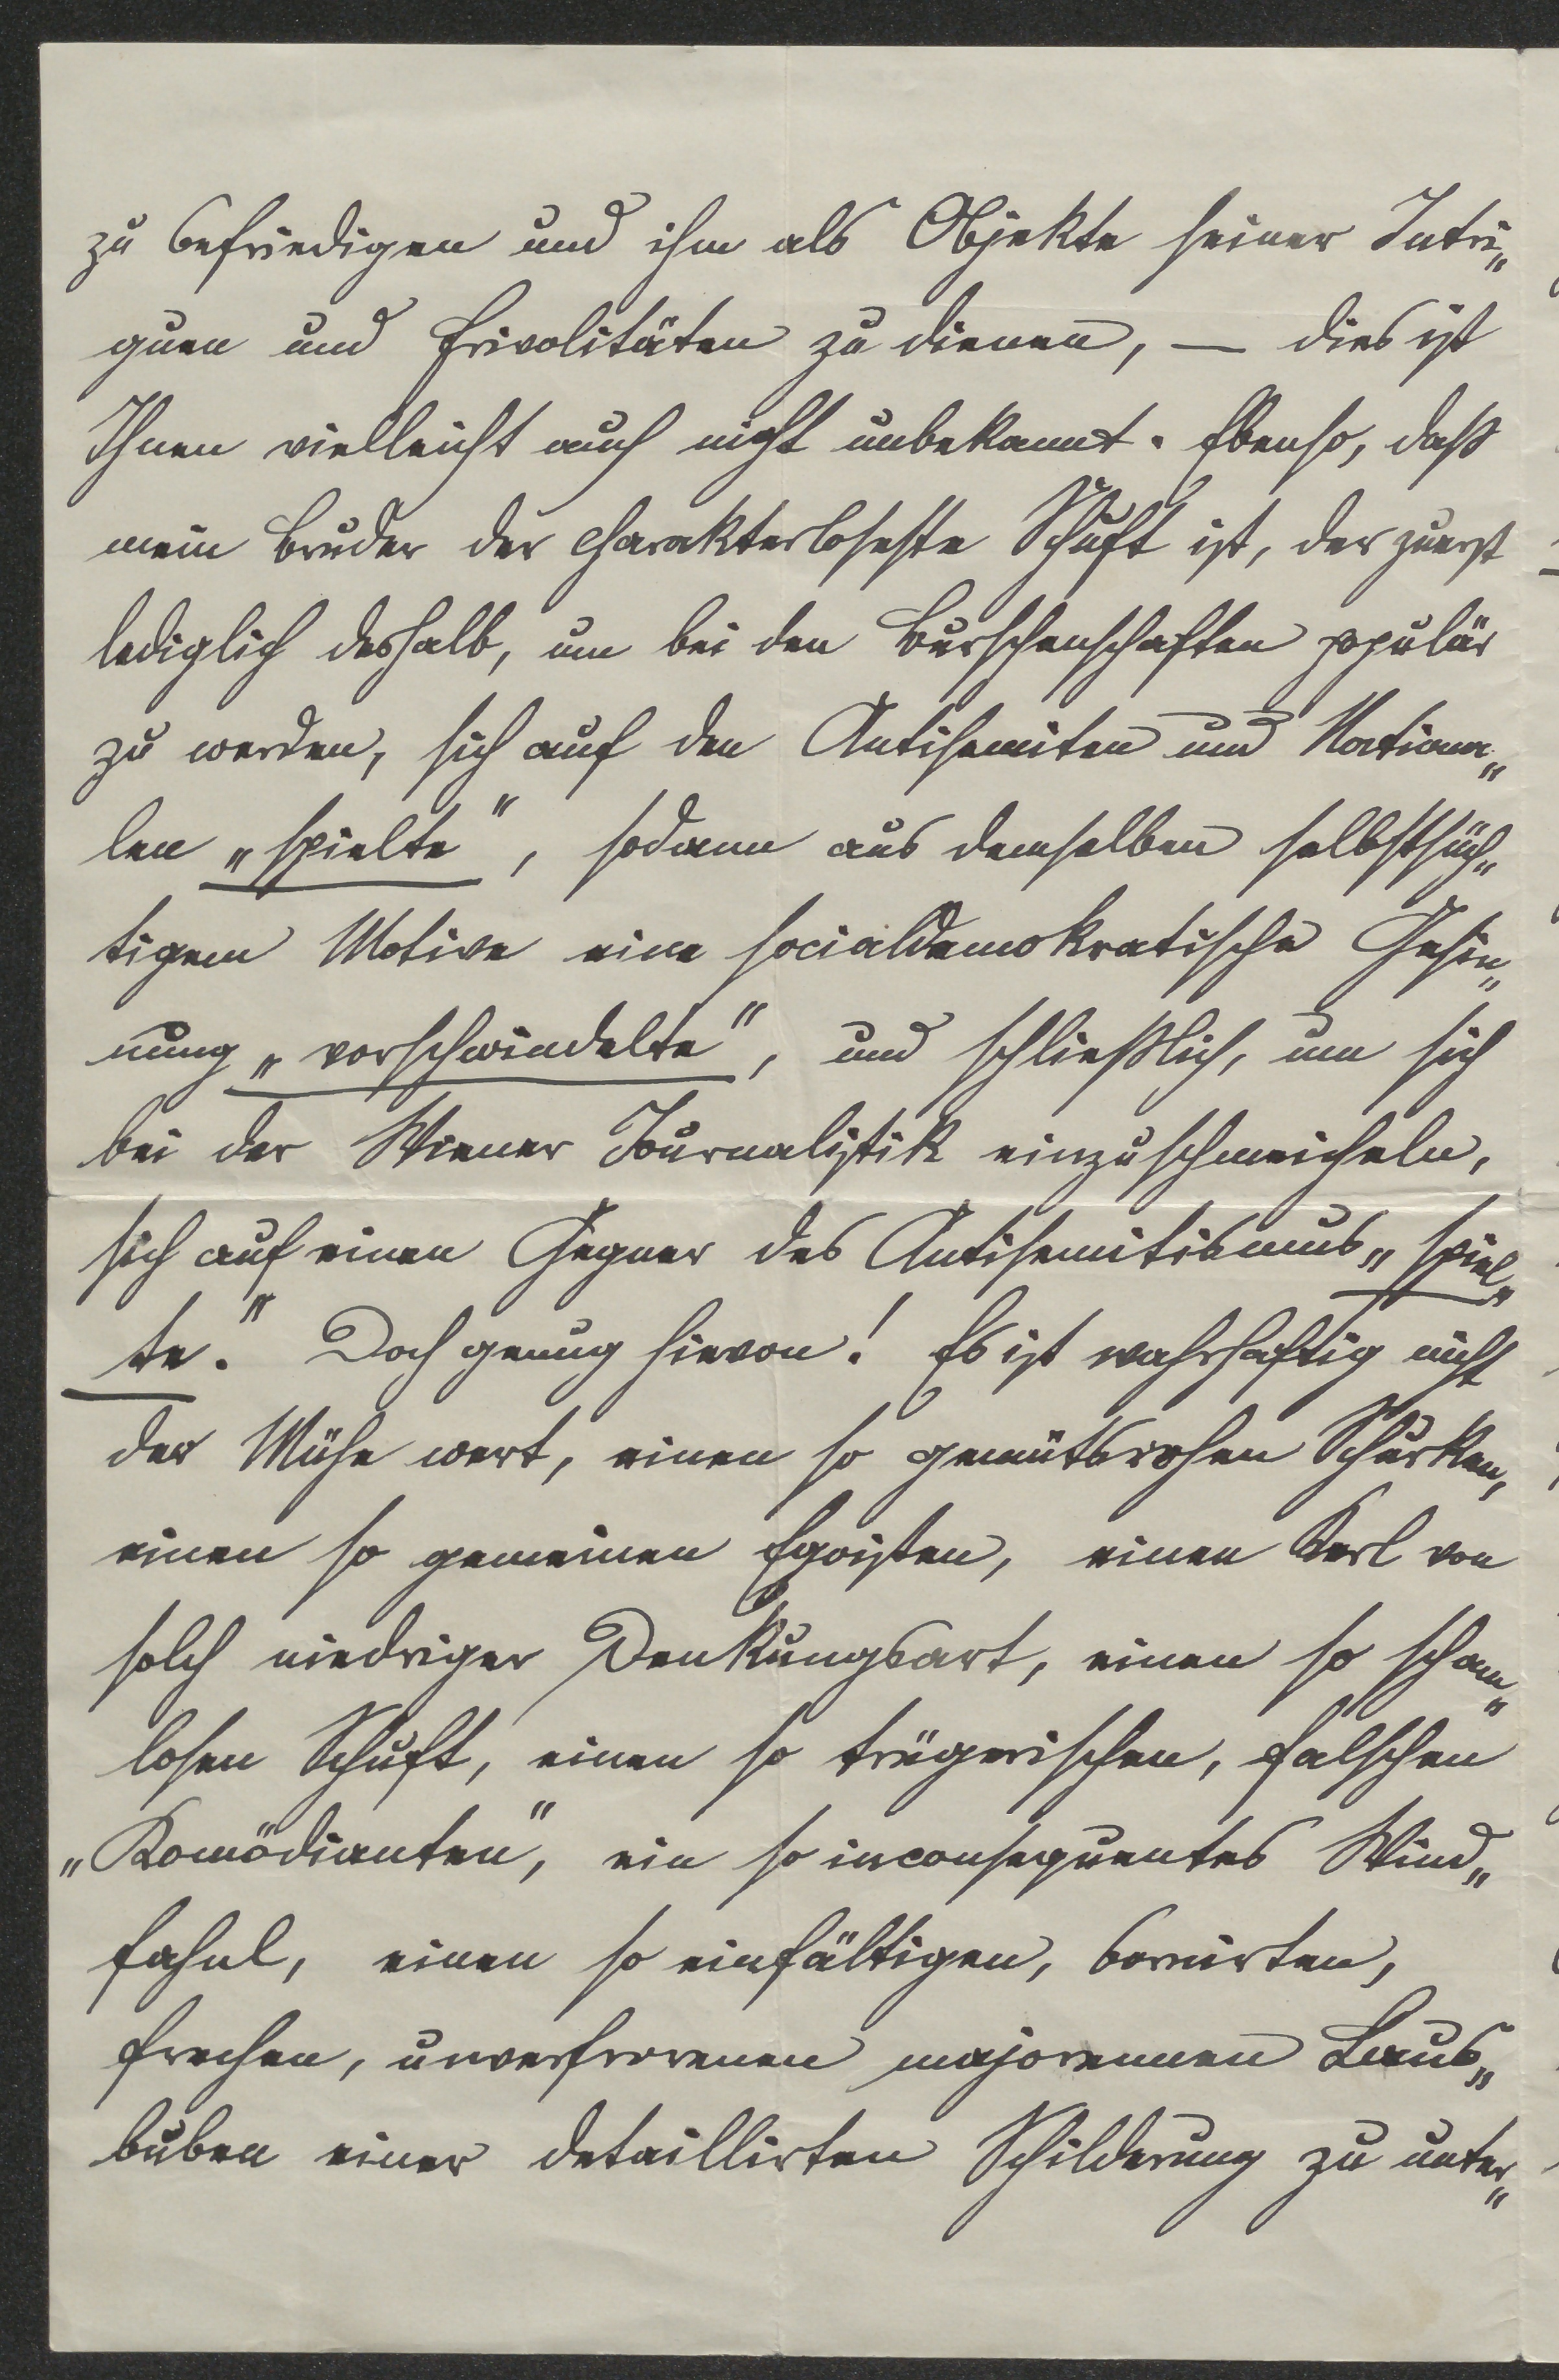 zu befriedigen und ihm als Objekte seiner Intri„
guen und Frivolitäten zu dienen, — dies ist
Ihnen vielleicht auch nicht unbekannt. Ebenso, daß
mein Bruder der charakterloseste Schuft ist, der zuerst
lediglich deshalb, um bei den Burschenschaften populär
zu werden, sich auf den Antisemiten und Nationa„
len „spielte", sodann aus demselben selbstsüch„
tigem Motive eine socialdemokratische Gesin„
nung „vorschwindelte", und schließlich, um sich
bei der Wiener Journalistik einzuschmeicheln,
sich auf einen Gegner des Antisemitismus „spiel„
te." Doch genug hievon! Es ist wahrhaftig nicht
der Mühe wert, einen so gemütsrohen Schurken,
einen so gemeinen Egoisten, einen Kerl von
solch niedriger Denkungsart, einen so scham„
losen Schuft, einen so trügerischen, falschen
„Komödianten", ein so inconsequentes Wind„
fahnl, einen so einfältigen, bornirten,
frechen, unverfrorenen majorennen Laus„
buben einer detaillirten Schilderung zu unter„